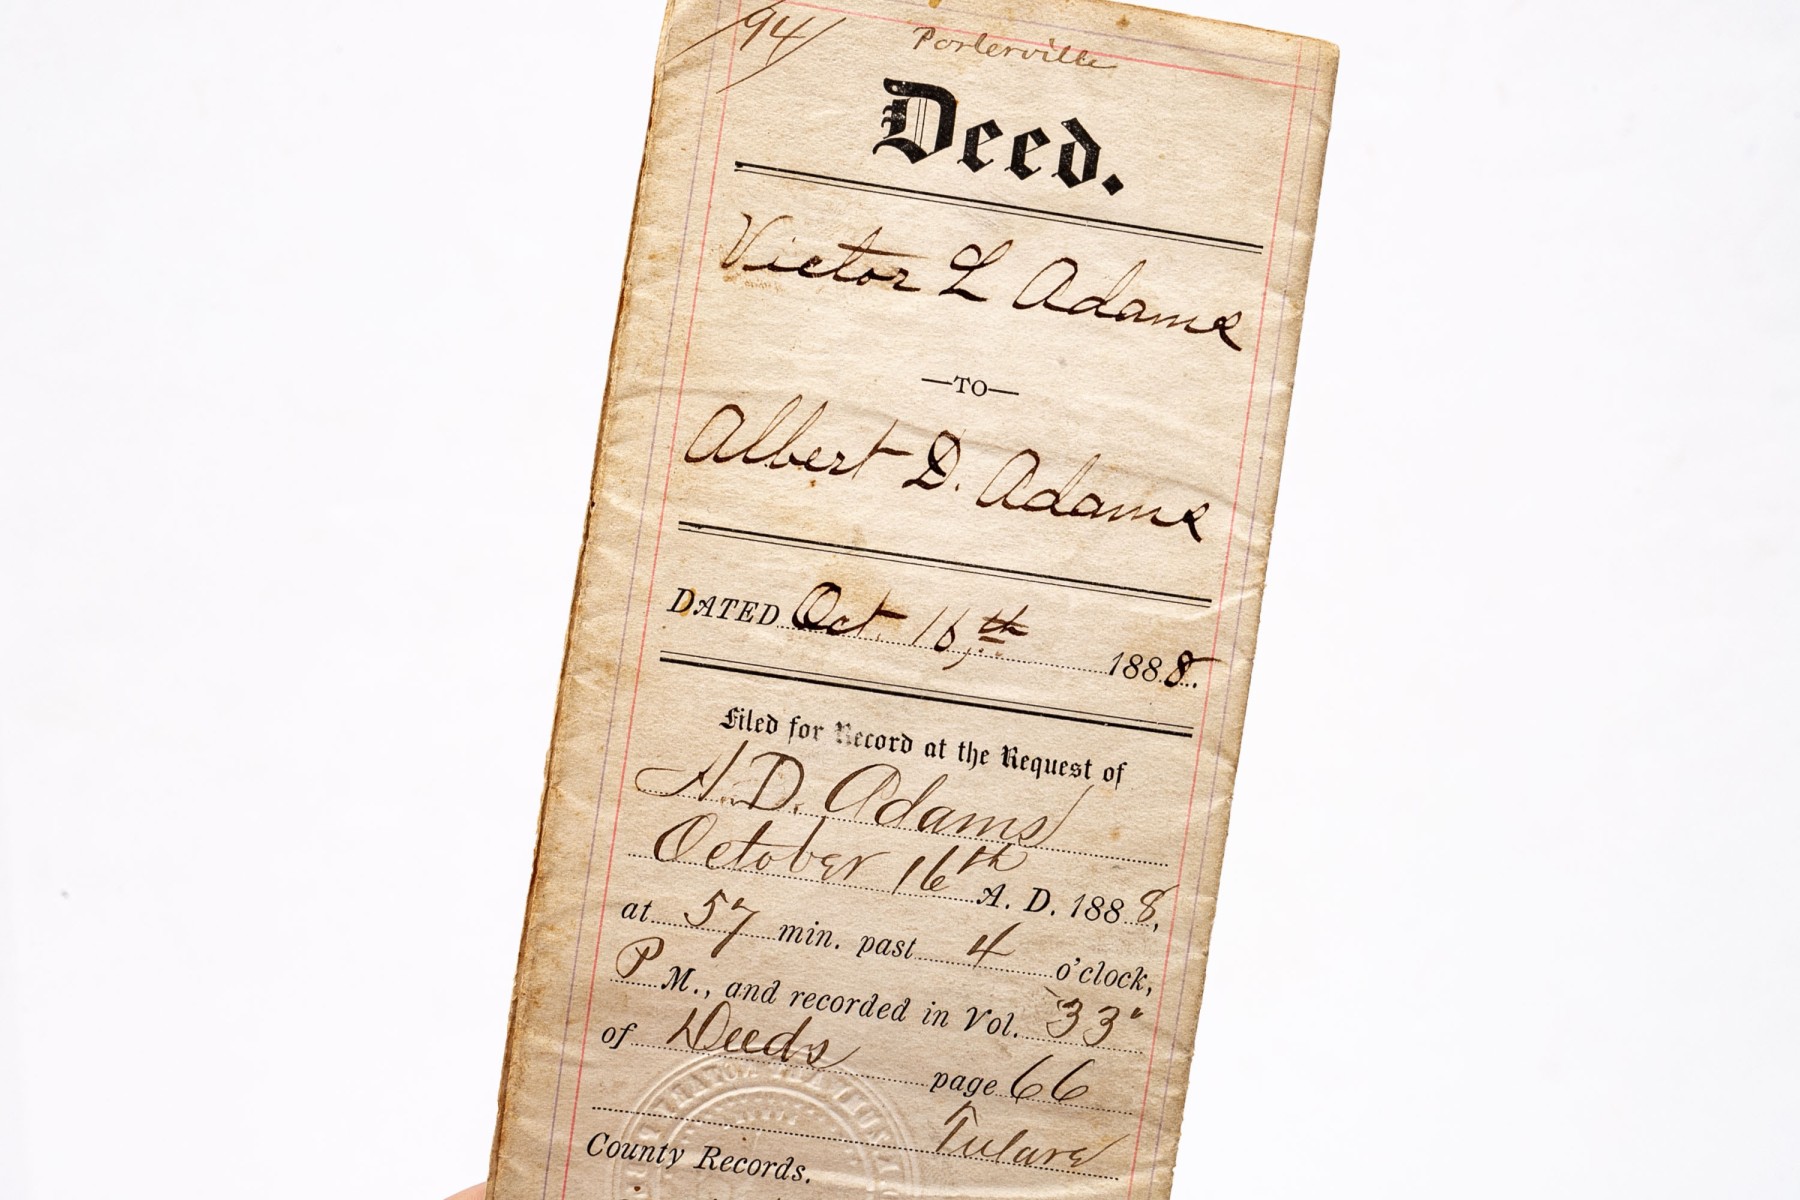 94
Porterville
Deed.
Victor L Adams
—TO—
Albert D. Adams
DATED Oct. 16,th 1888.
Filed for Record at the Request of
A. D. Adams
October 16th A. D. 1888,
at 57 min. past 4 o'clock,
P M., and recorded in Vol. "33"
of Deeds page 66
Tulare
County Records.